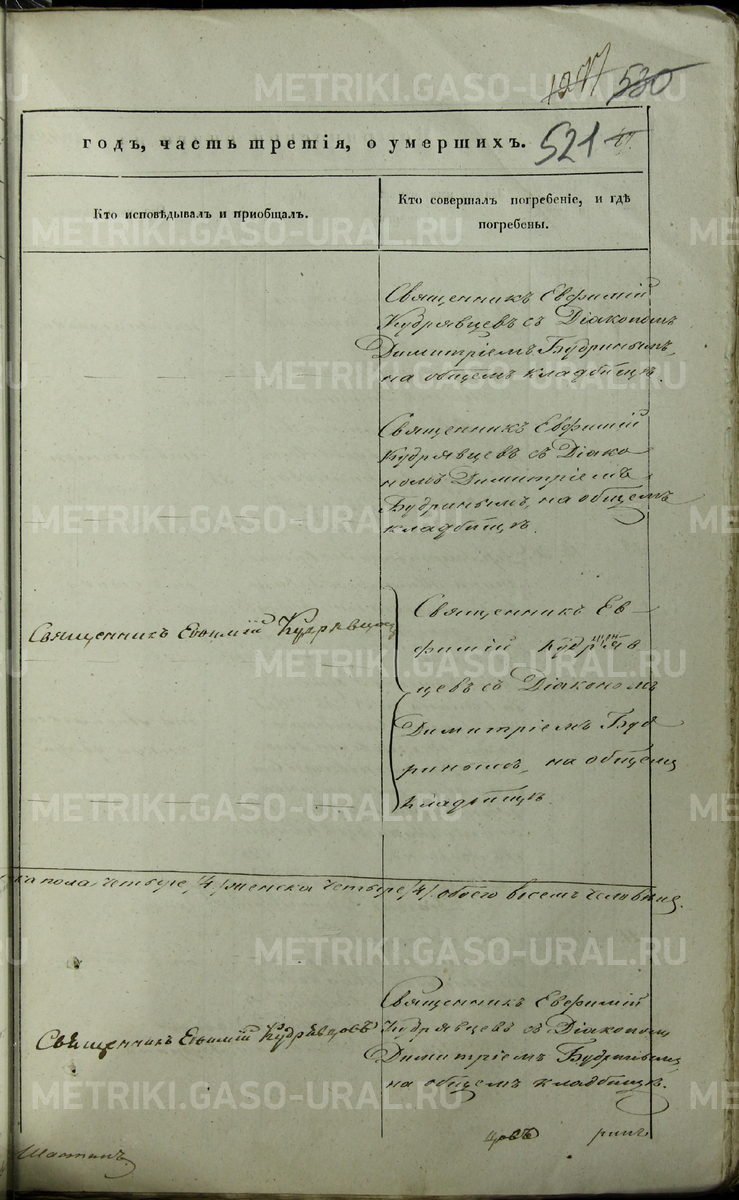 530
521
годъ, часть третія, о умершихъ.
Кто исповѣдывалъ и приобщалъ.
Кто совершалъ погребеніе, и гдѣ
погребены.
Священникъ Евфимій
Кудрявцевъ съ Діакономъ
Димитріемъ Будринымъ,
на общемъ кладбищѣ.
Священникъ Евфимій
Кудрявцевъ съ Діако-
номъ Димитріемъ
Будринымъ, на общемъ
кладбищѣ.
Священникъ Евѳимій Кудрявцовъ
Священникъ Ев-
фимій Кудряв
цевъ съ Діакономъ
Димитріемъ Буд
ринымъ, на общемъ
кладбищѣ
пола четыре /4/ женска четыре /4/ обоего восемь человѣкъ.
Священникъ Евѳимій Кудрявцовъ
Священникъ Евфимій
Кудрявцевъ съ Діакономъ
Димитріемъ Будринымъ,
на общемъ кладбищѣ.
цовъ
METRIKI.GASO-URAL.RU